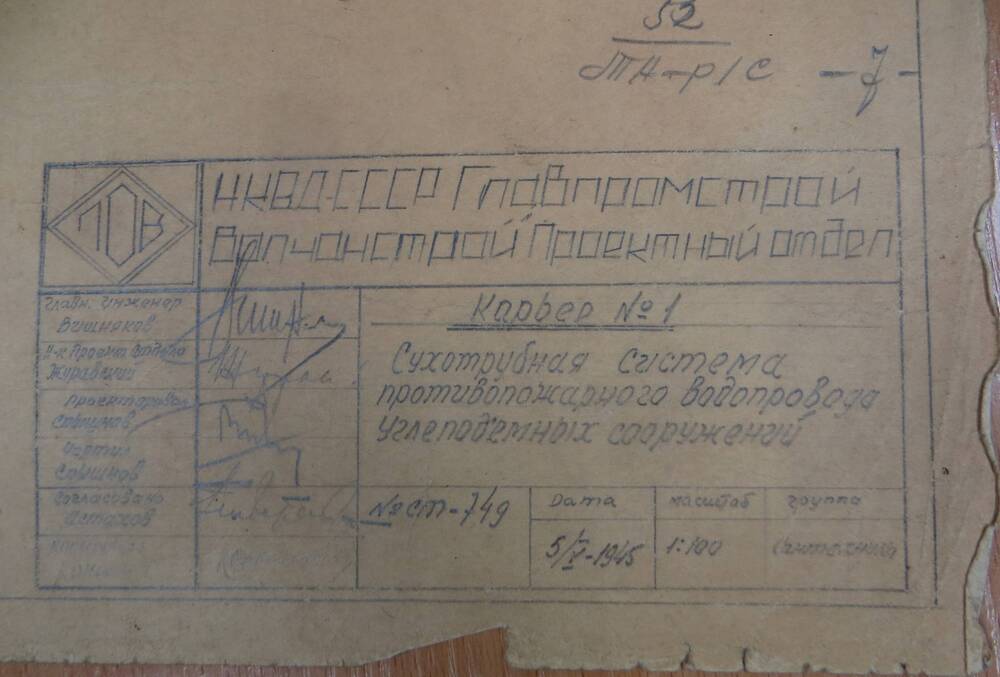 52
ТН-Р/С -7-
ПОВ
НКВД-СССР Главпромстрой
Волчанстрой Проектный отдел
Главн. Инженер
Вишняков
Н-к Проект. Отдела
Журавский
Проектировал
Чертил
Согласовано
Астахов
Карьер №1
Сухотрубная система
противопожарного водопровода
Углеподъемных сооружений
№ст-749
Дата
5/V-1945
масштаб
1:100
группа